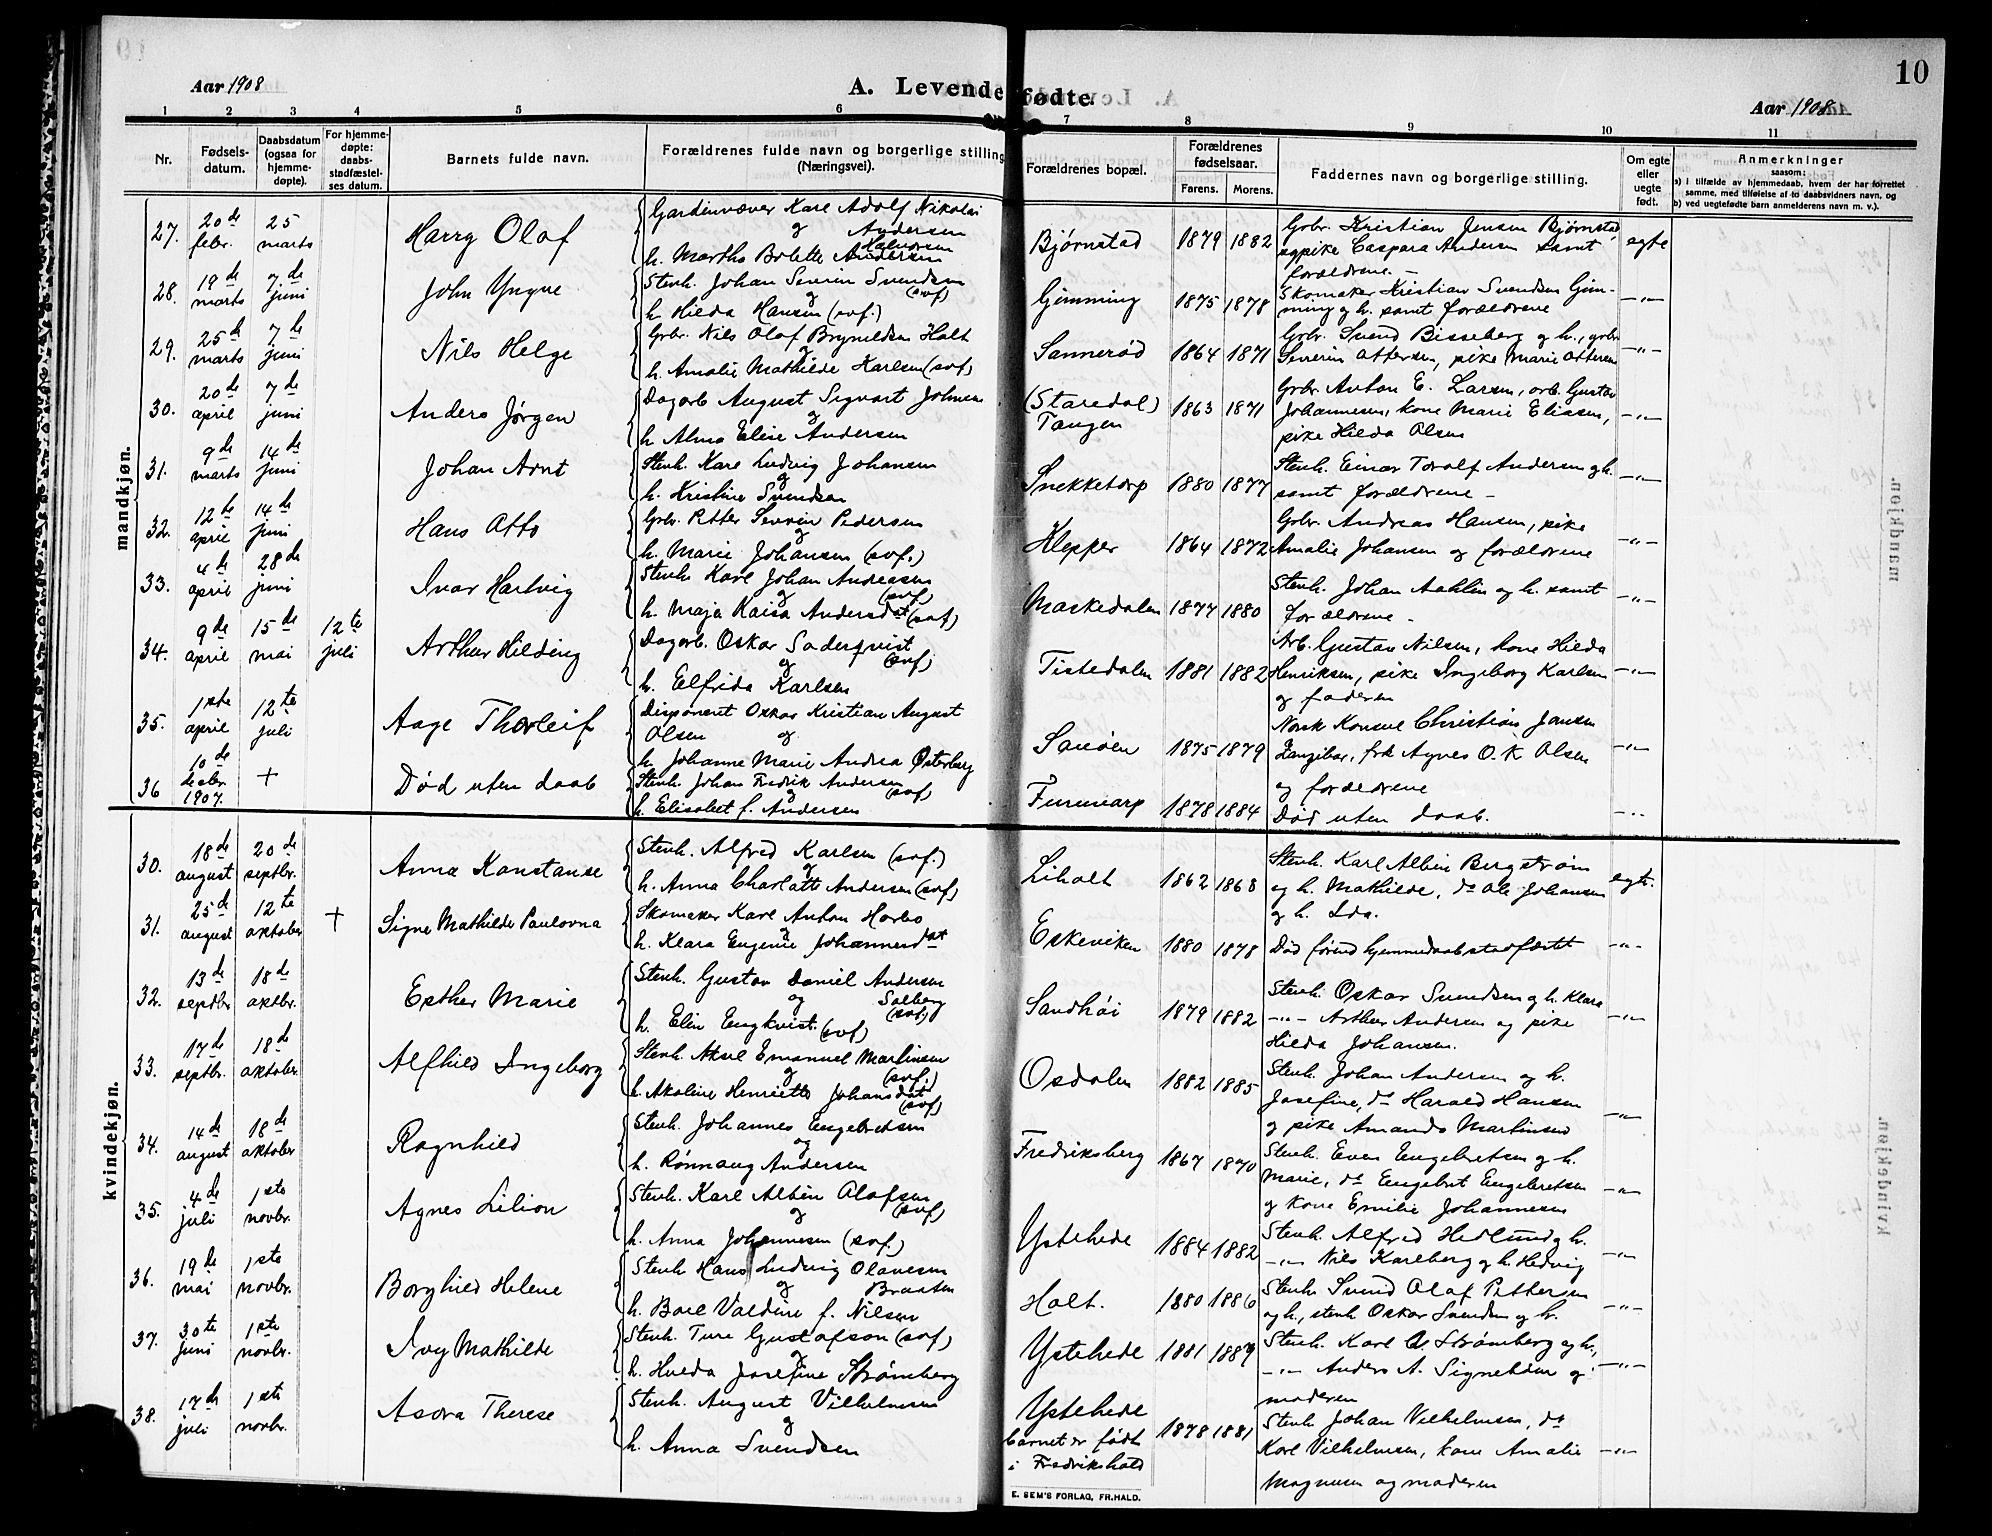 Aar 1908
A. Levendefødte.
Aar 1908
10
1 2 3 4 5 6 7 8 9 10 11
Nr.
Fødsels-
datum.
Daabsdatum
(ogsaa for
hjemme-
døpte).
For hjemme-
døpte:
daabs-
stadfæstel-
ses datum.
Barnets fulde navn.
Forældrenes fulde navn og borgerlige stilling
(Næringsvei).
Forældrenes bopæl.
Forældrenes
fødselsaar.
Farens. Morens.
Faddernes navn og borgerlige stilling.
Om egte
eller
uegte
født.
Anmerkninger
saasom:
a) i tilfælde av hjemmedaab, hvem der har forrettet
samme, med tilføielse af to daabsvidners navn, og
b) ved uegtefødte barn anmelderens navn m. v.).
mandkjøn.
27. 20de febr. 25 marts Harry Olaf
Gardinvæver Karl Adolf Nikolai
og Andersen
h. Martha Bolette Andersen
Halvorsen
Bjørnstad 1879 1882
Grbr. Kristian Jensen Bjørnstad
og pike Caspara Andersen samt
forældrene. –
egte
28. 19de marts 7de juni John Yngve
Stenh. Johan Severin Svendsen
og (svf)
h. Hilda Hansen (svf.)
Gimming 1875 1878
Skomaker Kristian Svendsen Gim-
ming og h. samt forældrene
–"–
29. 25de marts 7de juni Nils Helge
Grbr. Nils Olaf Brynildsen Holt
og
h. Amalie Mathilde Karlsen (svf)
Sannerød 1864 1871
Grbr. Svend Bisseberg og h., grbr.
Severin Ottersen, pike Marie Ottersen
–"–
30. 20de april 7de juni Anders Jørgen
Dagarb August Sigvart Johnsen
og
h. Alma Elise Andersen
(Staredal)
Tangen 1863 1871
Grbr. Anton E. Larsen, arb. Gustav
Johannesen, kone Marie Eliasen,
pike Hilda Olsen
–"–
31. 9de marts 14de juni Johan Arnt
Stenh. Karl Ludvig Johansen
og
h. Kristine Svendsen
Snekketorp 1880 1877
Stenh. Einar Toralf Andersen og h.
samt forældrene –
–"–
32. 12te april 14de juni Hans Otto
Grbr. Petter Severin Pedersen
og
h. Marie Johansen (svf.)
Klepper 1864 1872
Grbr. Andreas Hansen, pike
Amalie Johansen og forældrene
–"–
33. 4de april 28de juni Ivar Hartvig
Stenh. Karl Johan Andreasen
og (svf)
h. Maja Kaisa Andersdat (svf)
Maskedalen 1877 1880
Stenh. Johan Aahlin og h. samt
forældrene –
–"–
34. 9de april 15de mai 12te juli Arthur Hilding
Dagarb. Oskar Soderqvist
og (svf)
h. Elfrida Karlsen
Tistedalen 1881 1882
Arb. Gustav Nilsen, kone Hilda
Henriksen, pike Ingeborg Karlsen
og faderen
–"–
35. 1ste april 12te juli Aage Thorleif
Disponent Oskar Kristian August
Olsen og
h. Johanne Marie Andrea Østerberg
Sauøen 1875 1879
Norsk Konsul Christian Jansen
Zanzibar, frk Agnes O. K. Olsen
og forældrene
–"–
36 10de decbr. 1907. + Død uten daab
Stenh. Johan Fredrik Andersen
og (svf)
h. Elisabet f. Andersen
Furuvarp 1878 1884
Død uten daab.
–"–
kvindekjøn.
30. 18de august 20de septbr. Anna Konstanse
Stenh. Alfred Karlsen (svf.)
og
h. Anna Charlotte Andersen (svf)
Liholt 1862 1868
Stenh. Karl Albin Bergstrøm
og h. Mathilde, do Ole Johansen
og h. Ida.
egte.
31. 25de august 12te oktober + Signe Mathilde Paulovna
Skomaker Karl Anton Horbo
og
h. Klara Eugenie Johannesdat
Eskeviken 1880 1878
Død førend hjemmedaab stadfæstet
–"–
32. 13de septbr 18de oktbr. Esther Marie
Stenh. Gustav Daniel Andersen
og Solberg
(svf)
h. Elin Engkvist (svf)
Sandhøi 1879 1882
Stenh. Oskar Svendsen og h. Klara
–"– Arthur Andersen og pike
Hilda Johansen.
–"–
33. 17de septbr. 18de oktober Alfhild Ingeborg
Stenh. Aksel Emanuel Martinsen
og (svf.)
h. Akoline Henriette Johansdat
(svf)
Osdalen 1882 1885
Stenh. Johan Andersen og h.
Josefine, do Harald Hansen
og pike Amanda Martinsen
–"–
34. 14de august 18de oktober Ragnhild
Stenh. Johannes Engebretsen
og
h. Rønnaug Andersen
Fredriksberg 1867 1870
Stenh. Even Engebretsen og h.
Marie, do Engebret Engebretsen
og kone Emilie Johannesen
–"–
35. 4de juli 1ste novbr. Agnes Lilian
Stenh. Karl Albin Olafsen
og (svf)
h. Anna Johannesen (svf.)
Ystehede 1884 1882
Stenh. Alfred Hedlund og h.
–"– Nils Karlberg og h. Hedvig
–"–
36. 19de mai 1ste novbr. Borghild Helene
Stenh Hans Ludvig Olavesen
og Braaten
h. Borel Valdine f. Nilsen
Holt. 1880 1886
Stenh. Svend Olaf Pettersen
og h., stenh Oskar Svendsen og h.
–"–
37. 30te juni 1ste novbr. Ivy Mathilde
Stenh. Ture Gustafson (svf)
og
h. Hulda Josefine Strømberg
Ystehede 1881 1889
Stenh. Karl A. Strømberg og h.,
–"– Anders A. Signebøen og
moderen
–"–
38. 17de juli 1ste novbr. Asora Therese
Stenh. August Vilhelmsen
og
h. Anna Svendsen
Ystehede
barnet er født
i Fredrikshald
1878 1881
Stenh. Johan Vilhelmsen, do
Karl Vilhelmsen, kone Amalie
Magnusen og moderen
–"–
E. SEM'S FORLAG, FR.HALD.